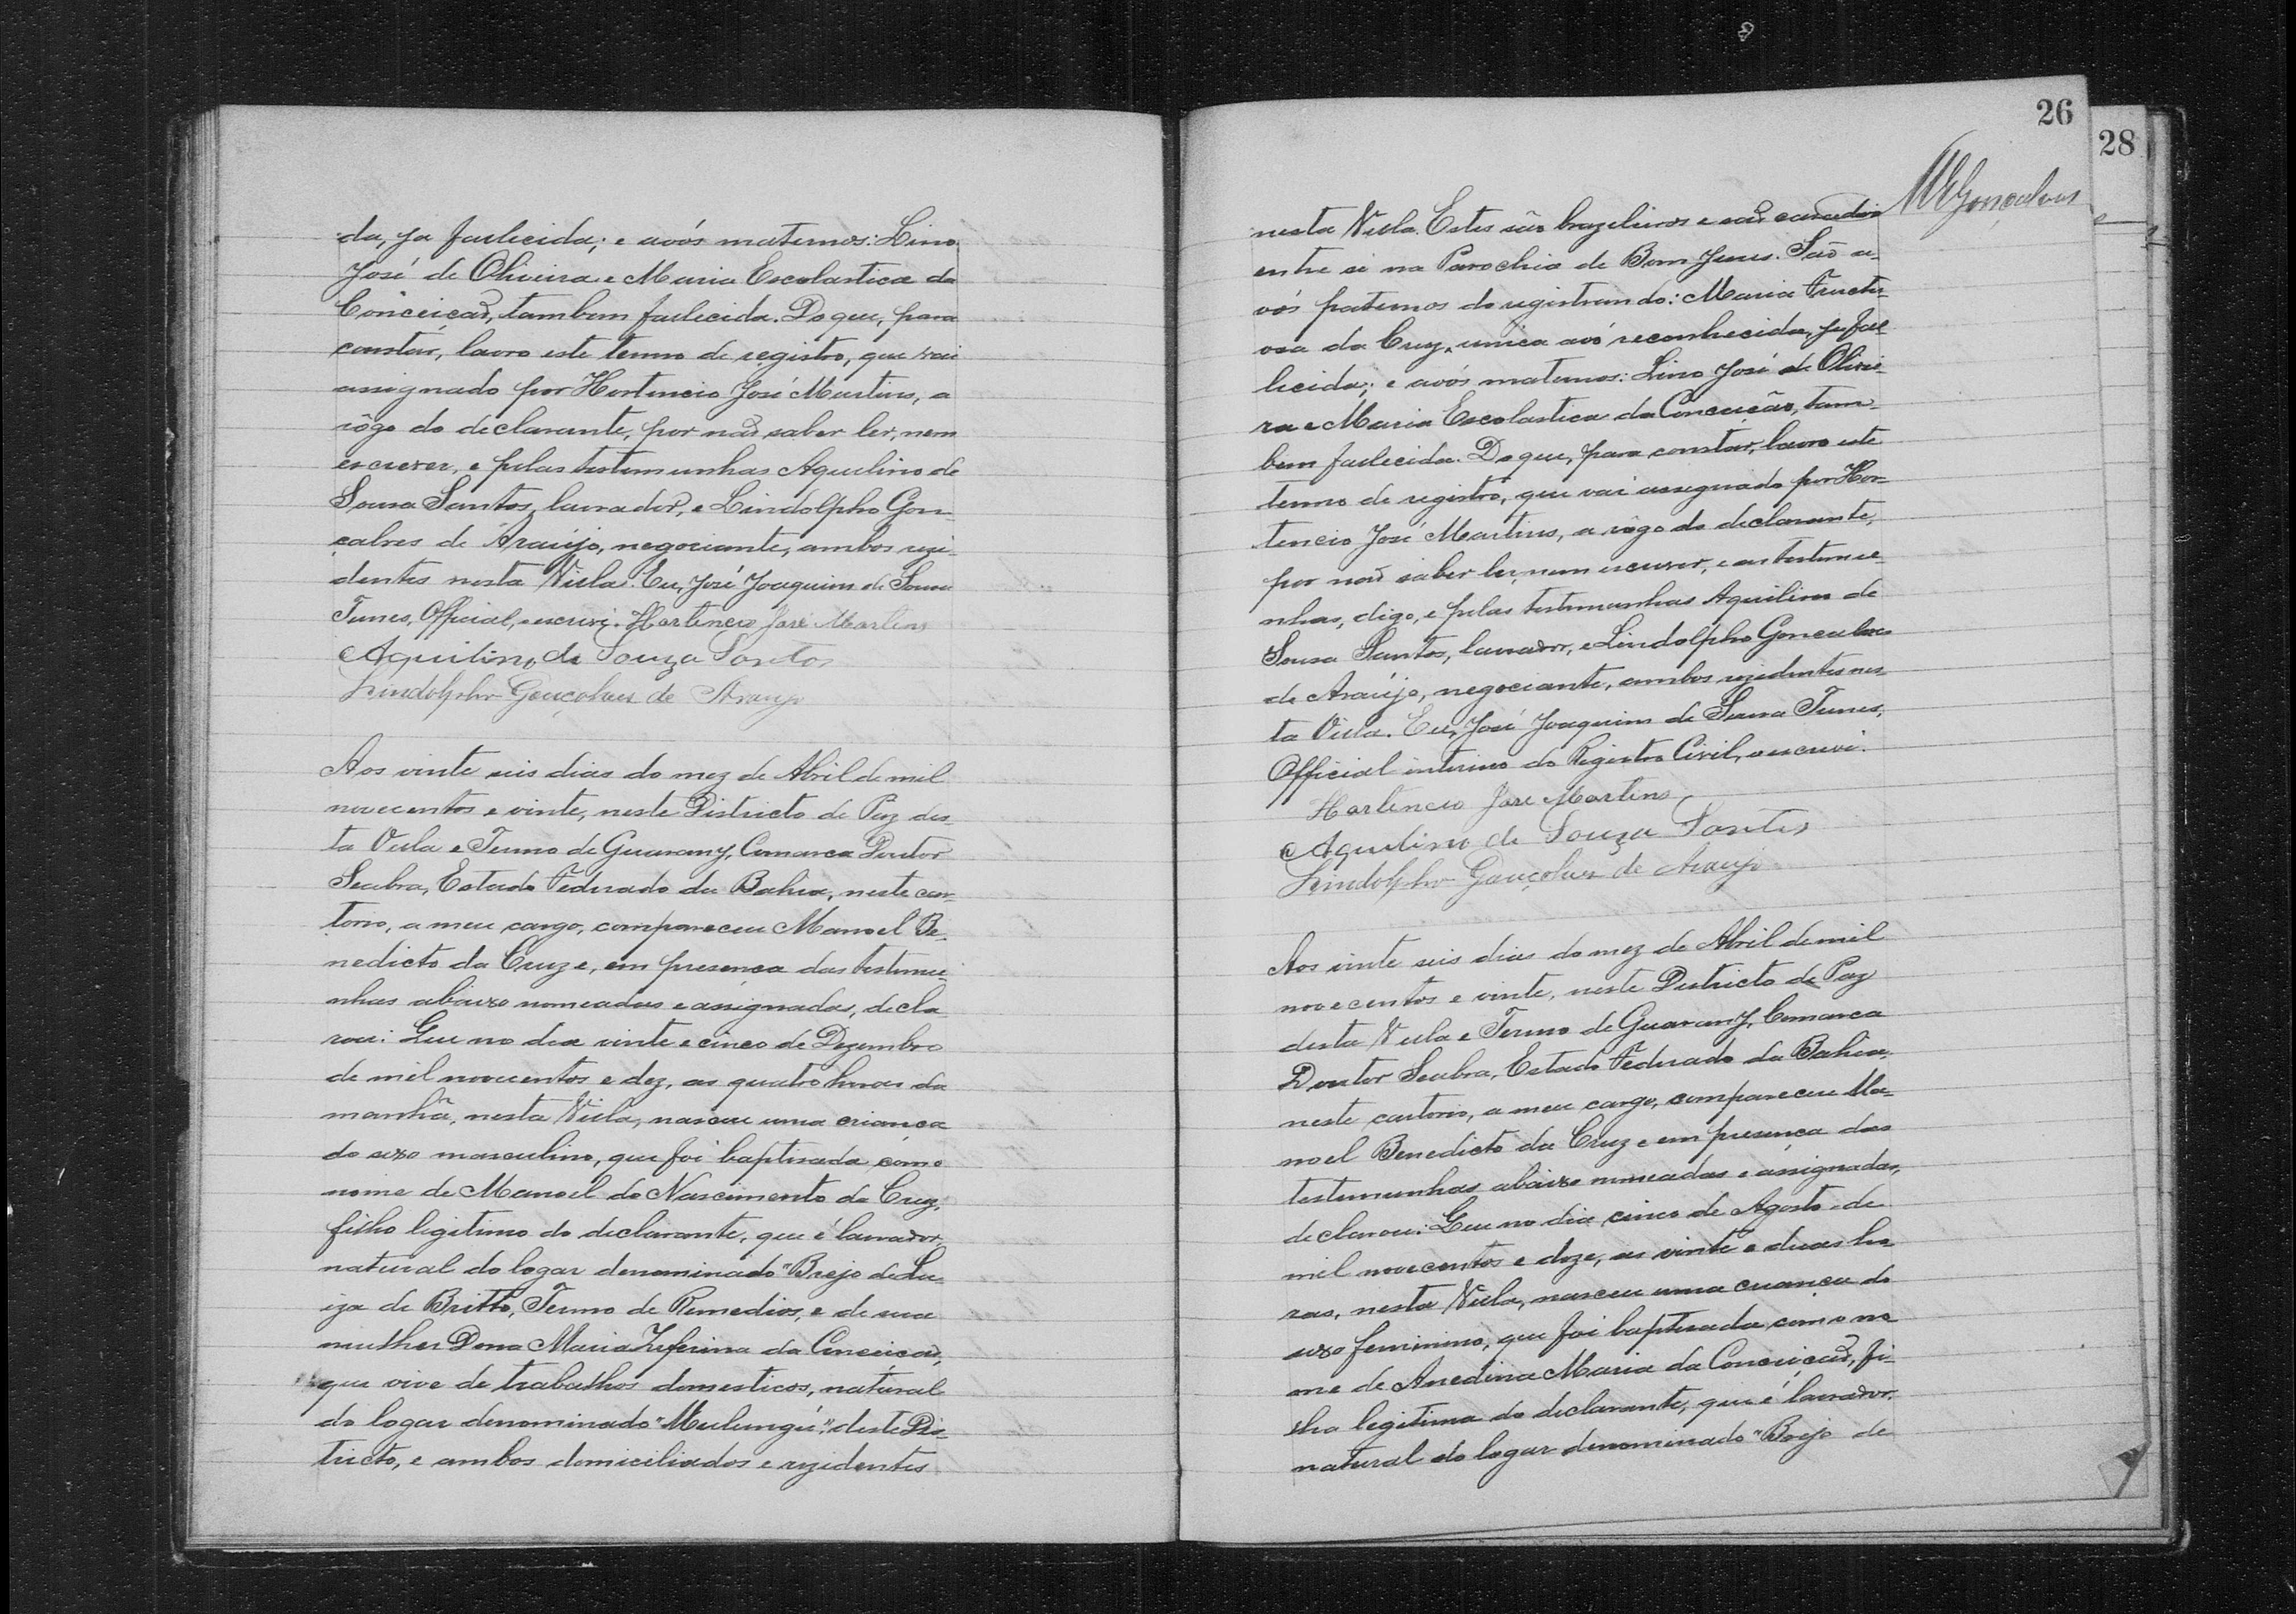 da, ja fallecida; e avós maternos: Lino
José de Oliveira e Maria Escolastica da
Conceição, tambem fallecida. Do que, para
constar, lavro este termo de registro, que vai
assignado por Hortencio José Martins, a
rôgo do declarante, por não saber ler, nem
escrever, e pelas testemunhas Aquilino de
Sousa Santos, lavrador, e Lindolpho Gon-
çalves de Araújo, negociante, ambos resi-
dentes nesta Villa. Eu, José Joaquim de Sousa
Tunes, Official, o escrevi. Hortencio José Martins
Aquilino de Souza Santos
Lindolpho Gonçalves de Araujo
Aos vinte seis dias do mez de Abril de mil
novecentos e vinte, neste Districto de Paz des-
ta Villa e Termo de Guarany, Comarca Doutor
Seabra, Estado Federado da Bahia, neste car-
torio, a meu cargo, compareceu Manoel Be-
nedicto da Cruz e, em presença das testemu-
nhas abaixo nomeadas e assignadas, decla
rou: Que no dia vinte e cinco de Dezembro
de mil novecentos e dez, as quatro horas da
manhã, nesta Villa, nasceu uma criança
do sexo masculino, que foi baptisada com o
nome de Manoel do Nascimento da Cruz,
filho legitimo do declarante, que é lavrador,
natural do logar denominado "Brejo de Lu-
iza de Britto, Termo de Remedios, e de sua
mulher Dona Maria Zuferina da Conceição,
que vive de trabalhos domesticos, natural
do logar denominado "Mulungú", deste Dis-
tricto, e ambos domiciliados e rezidentes
26
28
MEGonçalves
nesta Villa. Estes são brazileiros e são casados
entre si na Parochia de Bom Jesus. São a-
vós paternos do registrando: Maria Fructu-
osa da Cruz, unica avó reconhecida, ja fal-
lecida; e avós maternos: Lino José de Olivei-
ra e Maria Escolastica da Conceição, tam-
bem fallecida. Do que, para constar, lavro este
termo de registro, que vai assignado por Hor-
tencio José Martins, a rôgo do declarante,
por não saber ler, nem escrever, e as testemu-
nhas, digo, e pelas testemunhas Aquilino de
Sousa Santos, lavrador, e Lindolpho Gonçalves
de Araújo, negociante, ambos rezidentes nes-
ta Villa. Eu, José Joaquim de Sousa Tunes,
Official interino do Registro Civil, o escrevi.
Hortencio José Martins
Aquilino de Souza Santos
Lindolpho Gonçalves de Araujo
Aos vinte seis dias do mez de Abril de mil
novecentos e vinte, neste Districto de Paz
desta Villa e Termo de Guarany, Comarca
Doutor Seabra, Estado Federado da Bahia,
neste cartorio, a meu cargo, compareceu Ma-
noel Benedicto da Cruz e em presença das
testemunhas abaixo nomeadas e assignadas,
declarou: Que no dia cinco de Agosto de
mil novecentos e doze, as vinte e duas ho-
ras, nesta Villa, nasceu uma criança do
sexo feminino, que foi baptisada com o no-
me de Anedina Maria da Conceição, fi-
lha legitima do declarante, que é lavrador,
natural do logar denominado "Brejo de